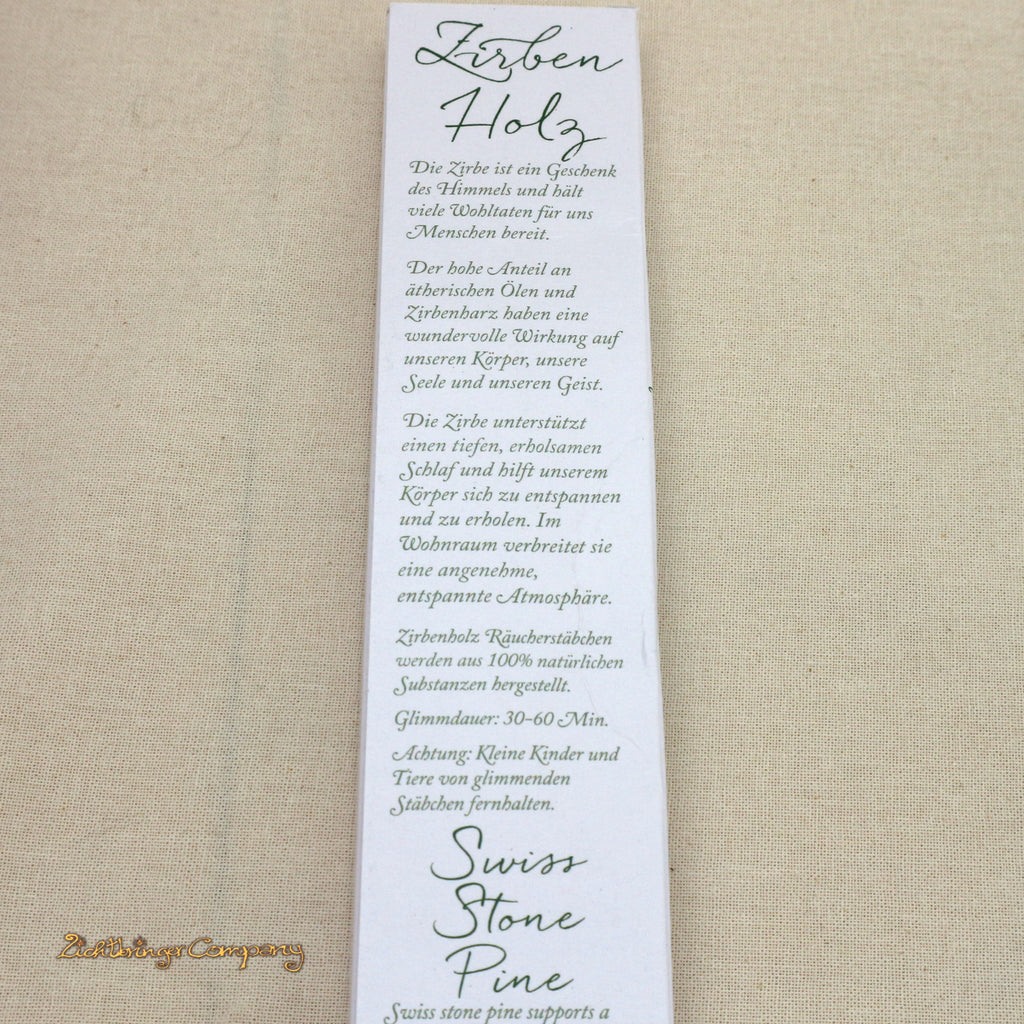 Zirben
Holz
Die Zirbe ist ein Geschenk
des Himmels und hält
viele Wohltaten für uns
Menschen bereit.
Der hohe Anteil an
ätherischen Ölen und
Zirbenharz haben eine
wundervolle Wirkung auf
unseren Körper, unsere
Seele und unseren Geist.
Die Zirbe unterstützt
einen tiefen, erholsamen
Schlaf und hilft unserem
Körper sich zu entspannen
und zu erholen. Im
Wohnraum verbreitet sie
eine angenehme,
entspannte Atmosphäre.
Zirbenholz Räucherstäbchen
werden aus 100% natürlichen
Substanzen hergestellt.
Glimmdauer: 30-60 Min.
Achtung: Kleine Kinder und
Tiere von glimmenden
Stäbchen fernhalten.
Swiss
Stone
Pine
Swiss stone pine supports a
Lichtbringer Company